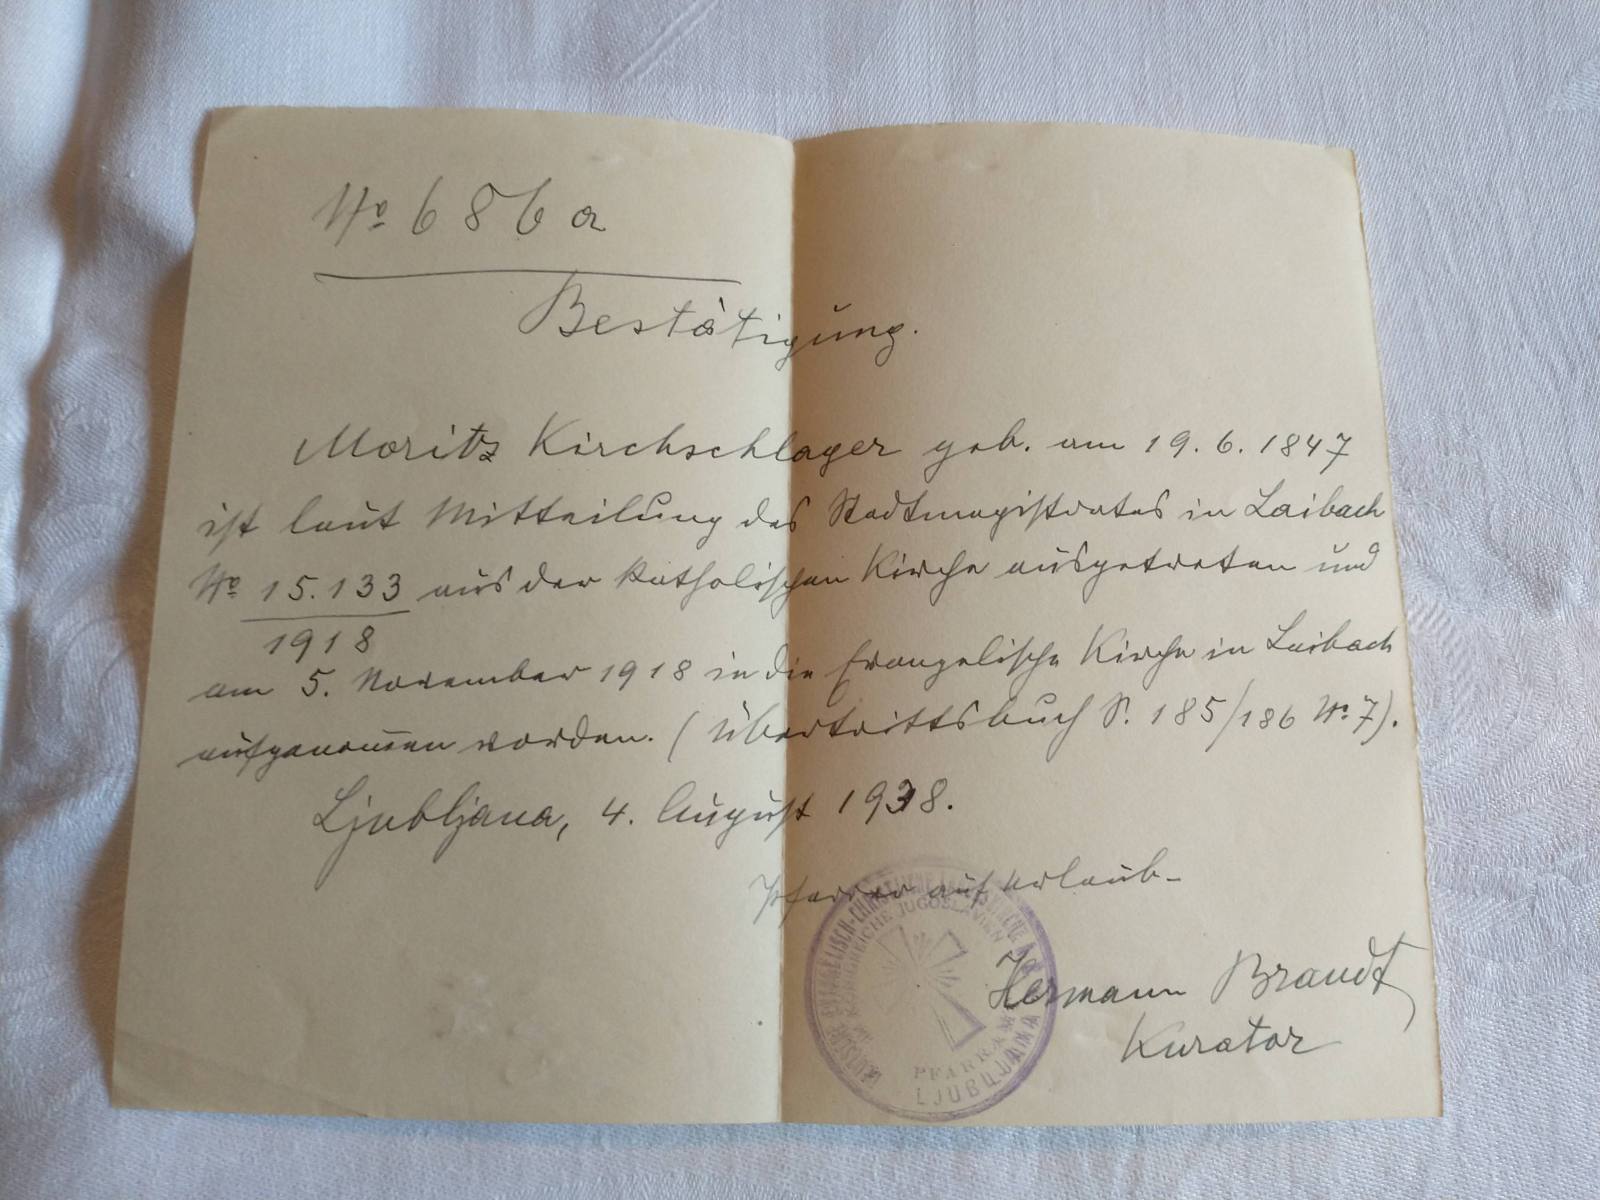 No 686a
Bestätigung.
Moritz Kirchschlager geb. am 19. 6. 1847
ist laut Mitteilung des Stadtmagistrates in Laibach
No 15.133 aus der katholischen Kirche ausgetreten und
1918
am 5. November 1918 in die Evangelische Kirche in Laibach
aufgenom̄en worden. (Übertrittsbuch S. 185/186 No 7).
Ljubljana, 4. August 1938.
Pfarrer auf Urlaub-
Hermann Brandt
Kurator
DEUTSCHE EVANGELISCH-CHRISTLICHE KIRCHE A.B.
IM KÖNIGREICHE JUGOSLAVIEN
PFARRAMT
LJUBLJANA